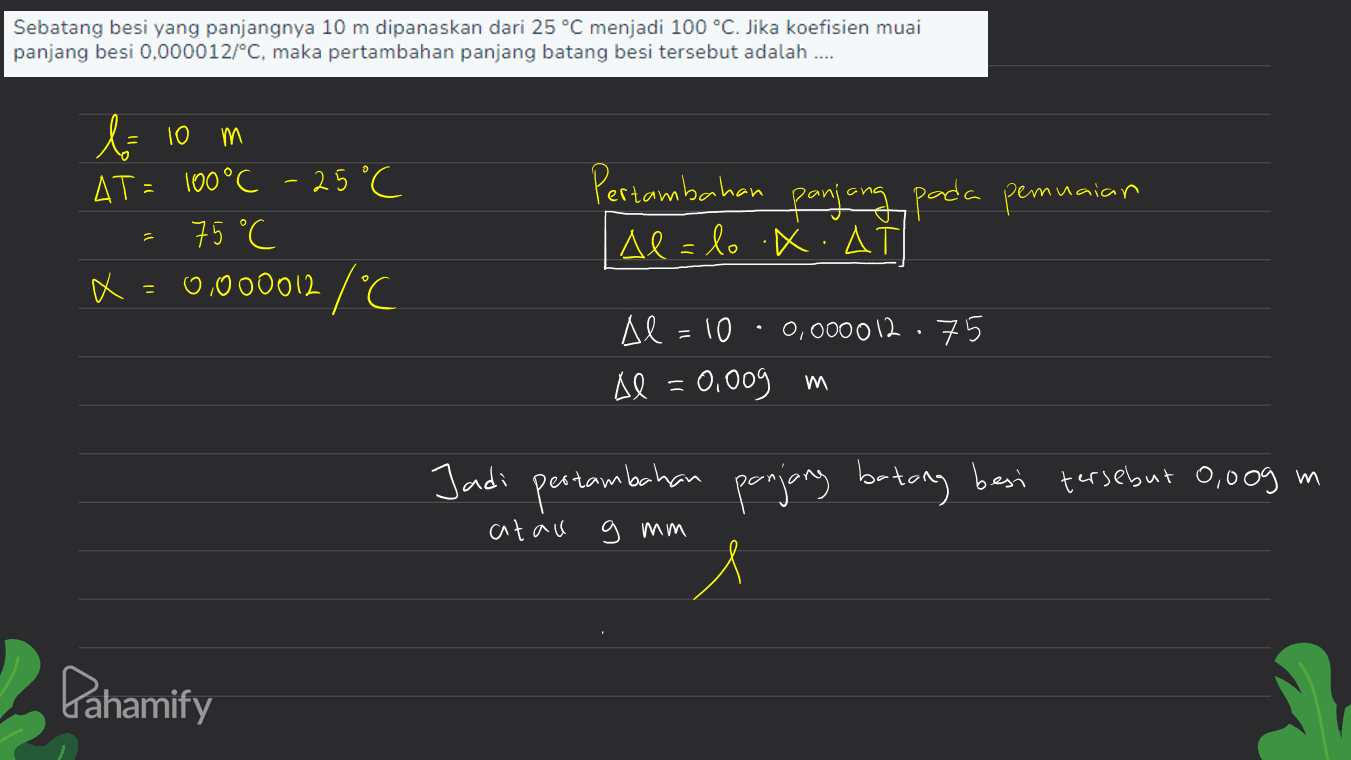 Sebatang besi yang panjangnya 10 m dipanaskan dari 25 °C menjadi 100 °C. Jika koefisien muai
panjang besi 0,000012/°C, maka pertambahan panjang batang besi tersebut adalah ....
l₀ = 10 m
ΔT = 100°C - 25°C
= 75°C
α = 0,000012/°C
Pertambahan panjang pada pemuaian
Δl = l₀ . α . ΔT
Δl = 10 . 0,000012 . 75
Δl = 0,009 m
Jadi pertambahan panjang batang besi tersebut 0,009 m
atau 9 mm
Pahamify